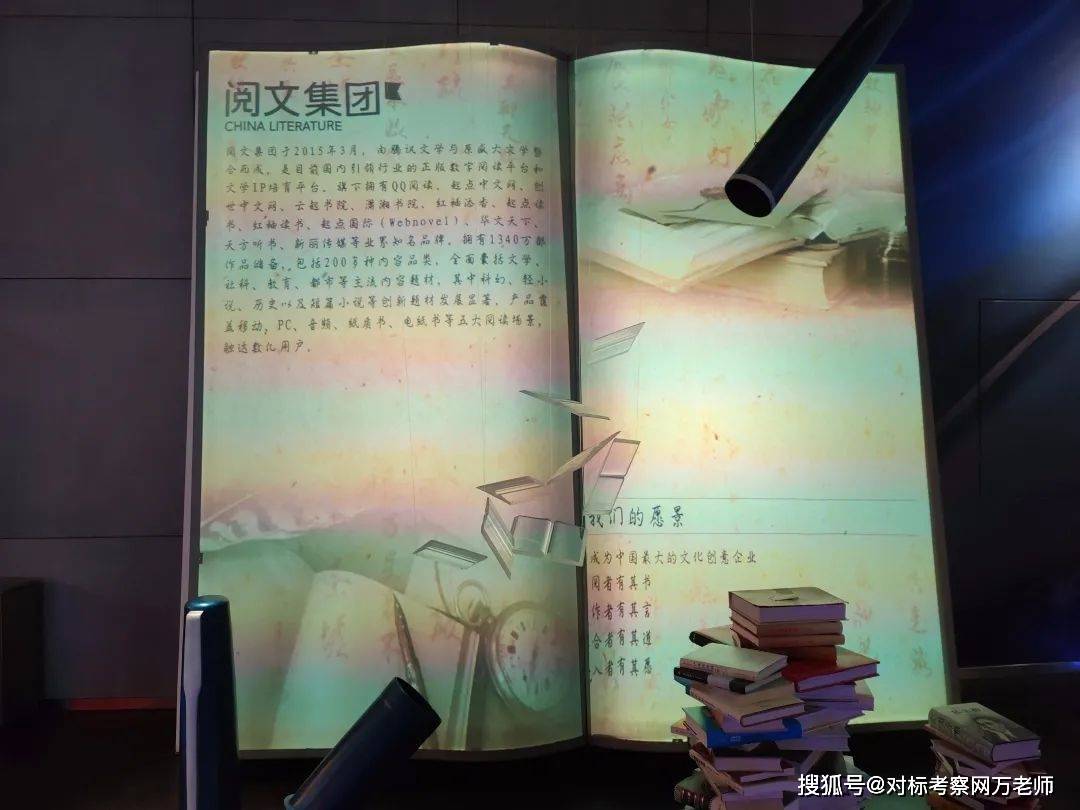 阅文集团
CHINA LITERATURE
阅文集团于2015年3月，由腾讯文学与原盛大文学整
合而成，是目前国内引领行业的正版数字阅读平台和
文学IP培育平台。旗下拥有QQ阅读、起点中文网、创
世中文网、云起书院、潇湘书院、红袖添香、起点读
书、红袖读书、起点国际（Webnovel）、华文天下、
天方听书、新丽传媒等业界知名品牌，拥有1340万部
作品储备，包括200多种内容品类，全面囊括文学、
社科、教育、都市等主流内容题材，其中科幻、轻小
说、历史以及短篇小说等创新题材发展显著。产品覆
盖移动、PC、音频、纸质书、电纸书等五大阅读场景，
触达数亿用户。
我们的愿景
成为中国最大的文化创意企业
阅者有其书
作者有其言
合者有其道
入者有其愿
搜狐号@对标考察网万老师